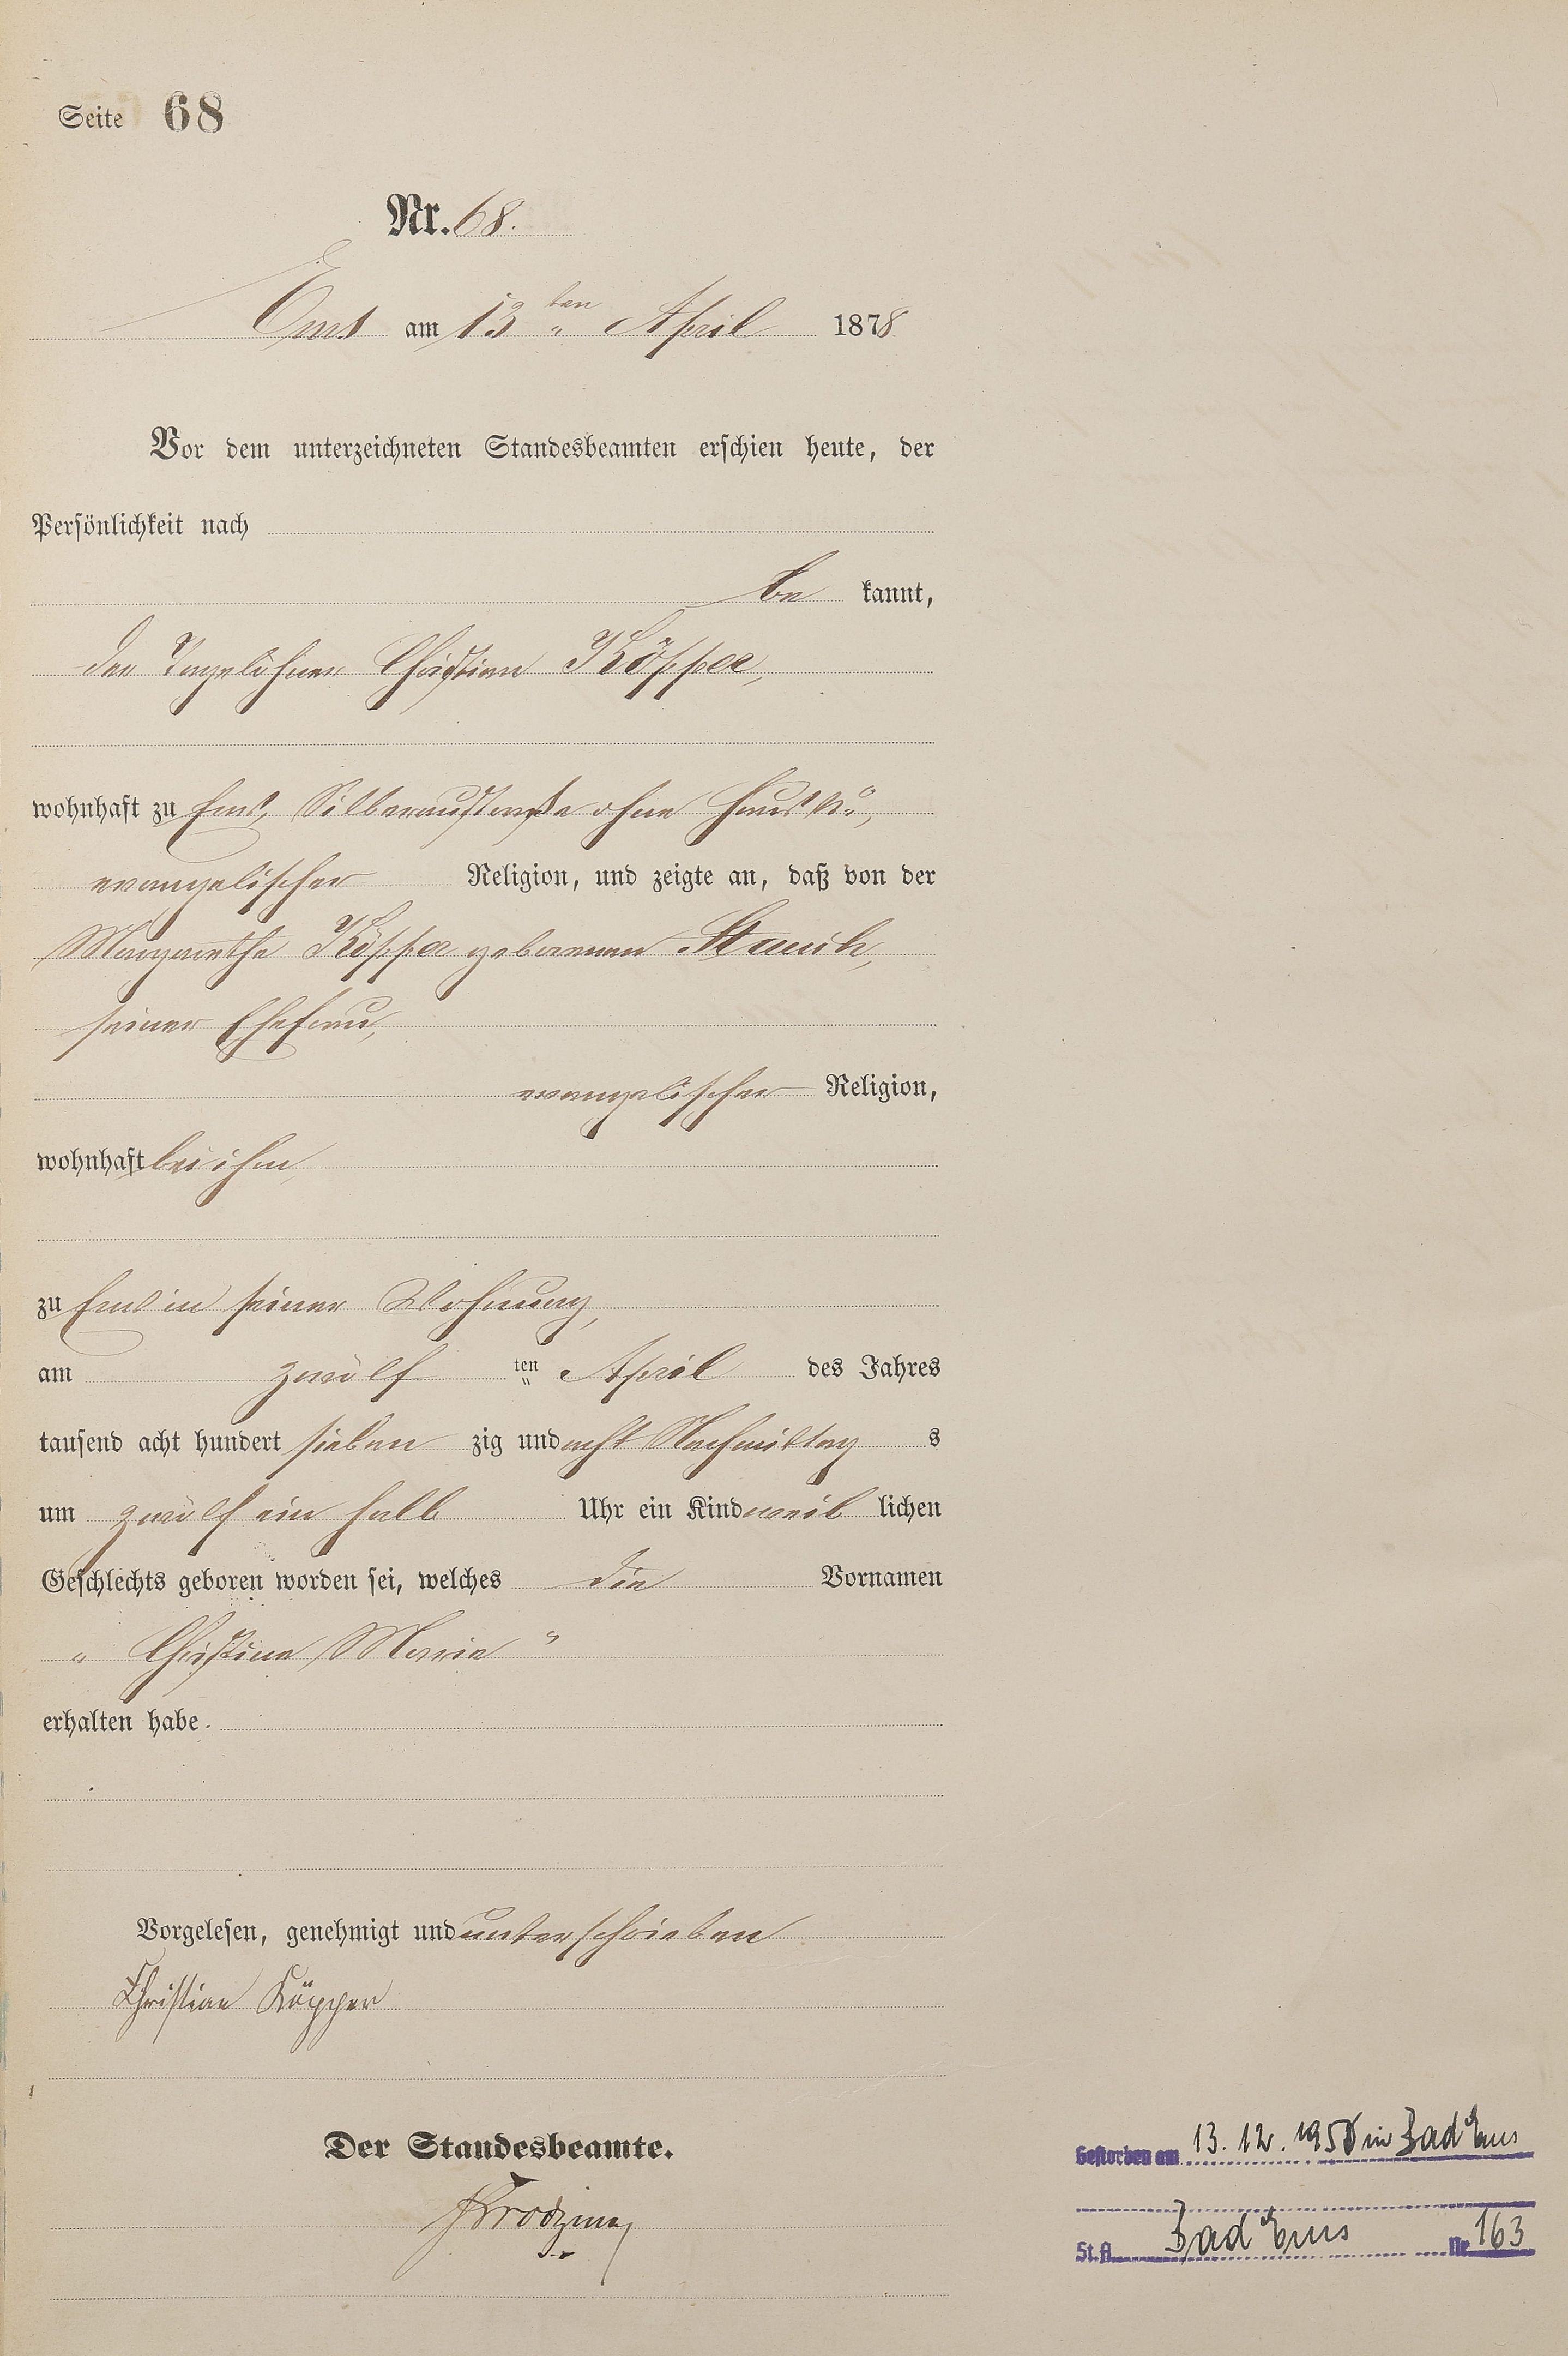 Seite 68
Nr. 68.
Ems am 13ten April 1878
Vor dem unterzeichneten Standesbeamten erschien heute, der
Persönlichkeit nach
be kannt,
der Tagelöhner Christian Köpper,
wohnhaft zu Ems, Silberaustraße ohne Haus No,
evangelischer Religion, und zeigte an, daß von der
Margarethe Köpper geborenen
seiner Ehefrau,
evangelischer Religion,
wohnhaft bei ihm,
zu Ems in seiner Wohnung,
am zwölf ten April des Jahres
tausend acht hundert sieben zig und acht Nachmittag s
um zwölf ein halb Uhr ein Kind weib lichen
Geschlechts geboren worden sei, welches die Vornamen
" Christine Marie "
erhalten habe.
Vorgelesen, genehmigt und unterschrieben
Christian Köpper
Der Standesbeamte.
Gestorben am 13. 12. in Bad Ems
St.A. Bad Ems Nr. 163